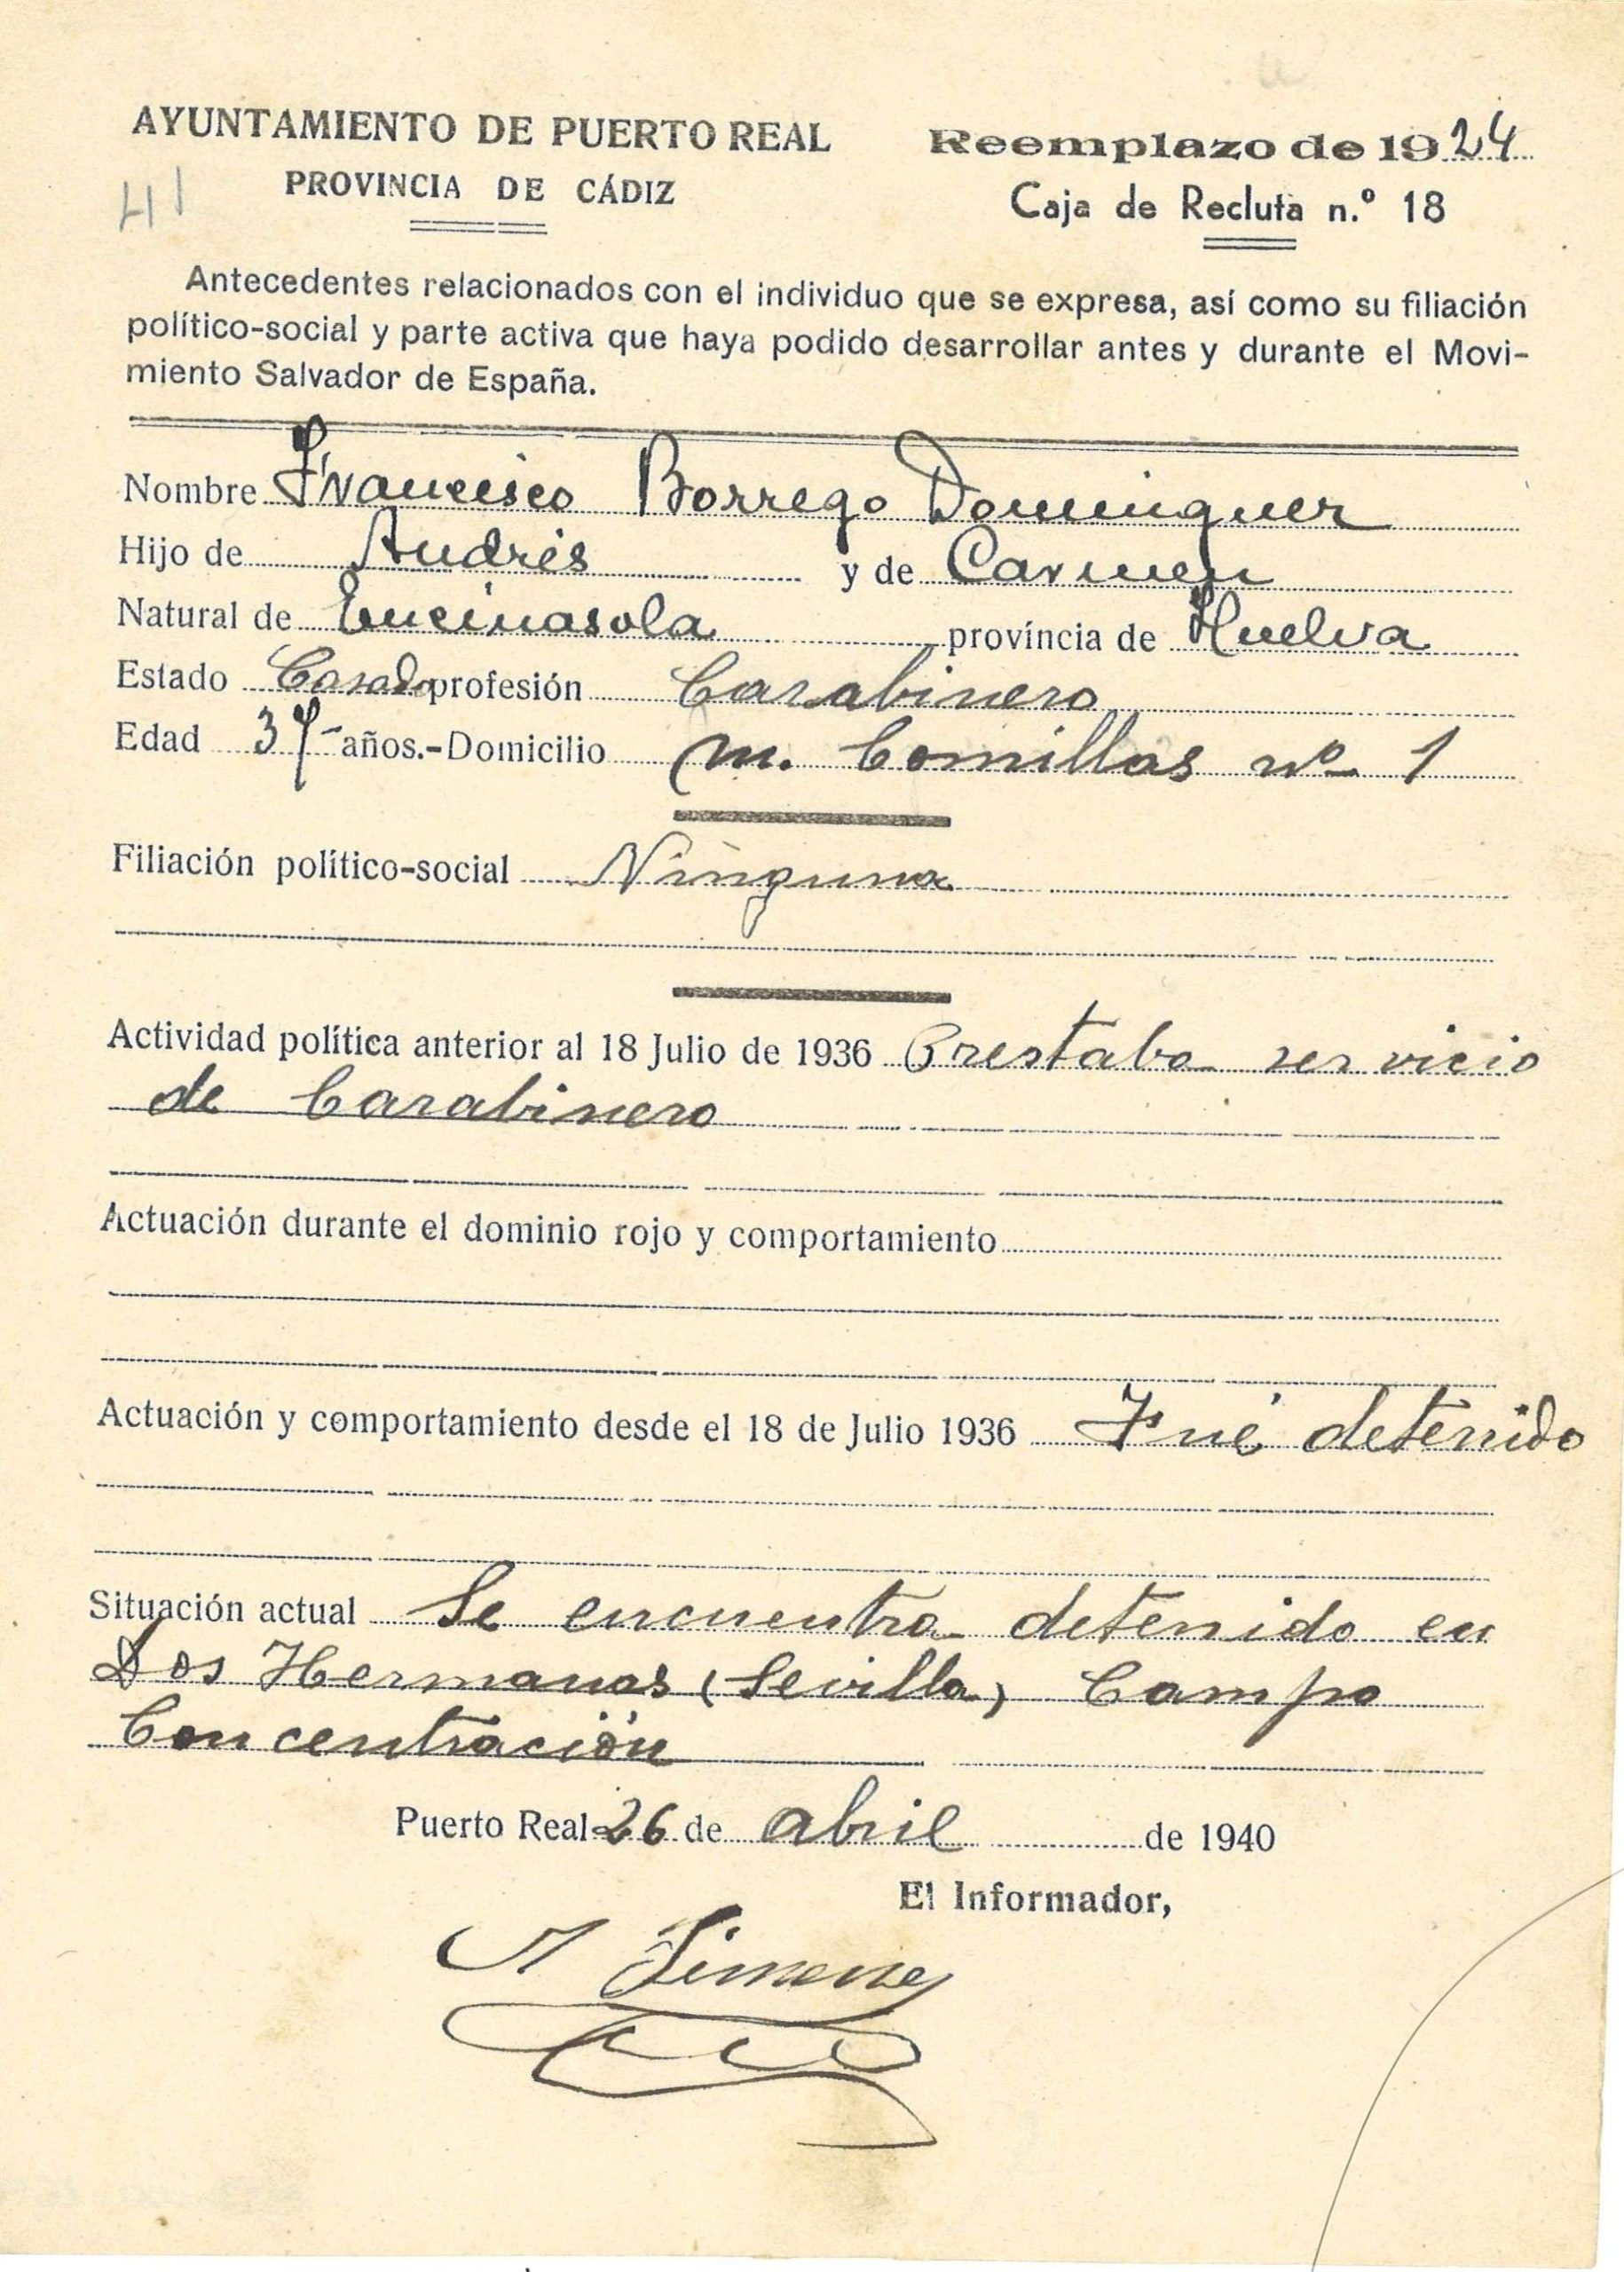 AYUNTAMIENTO DE PUERTO REAL
PROVINCIA DE CÁDIZ
41
Reemplazo de 1924
Caja de Recluta n.º 18
Antecedentes relacionados con el individuo que se expresa, así como su filiación
político-social y parte activa que haya podido desarrollar antes y durante el Movi-
miento Salvador de España.
Nombre Francisco Borrego Dominguez
Hijo de Andrés y de Carmen
Natural de Encinasola provincia de Huelva
Estado Casado profesión Carabinero
Edad años.-Domicilio M. Comillas nº 1
Filiación político-social Ninguna
Actividad política anterior al 18 Julio de 1936 Prestaba servicio
de Carabinero
Actuación durante el dominio rojo y comportamiento
Actuación y comportamiento desde el 18 de Julio 1936 Fué detenido
Situación actual Se encuentra detenido en
Dos Hermanas (Sevilla) Campo
Concentración
Puerto Real 26 de abril de 1940
El Informador,
Jimenez